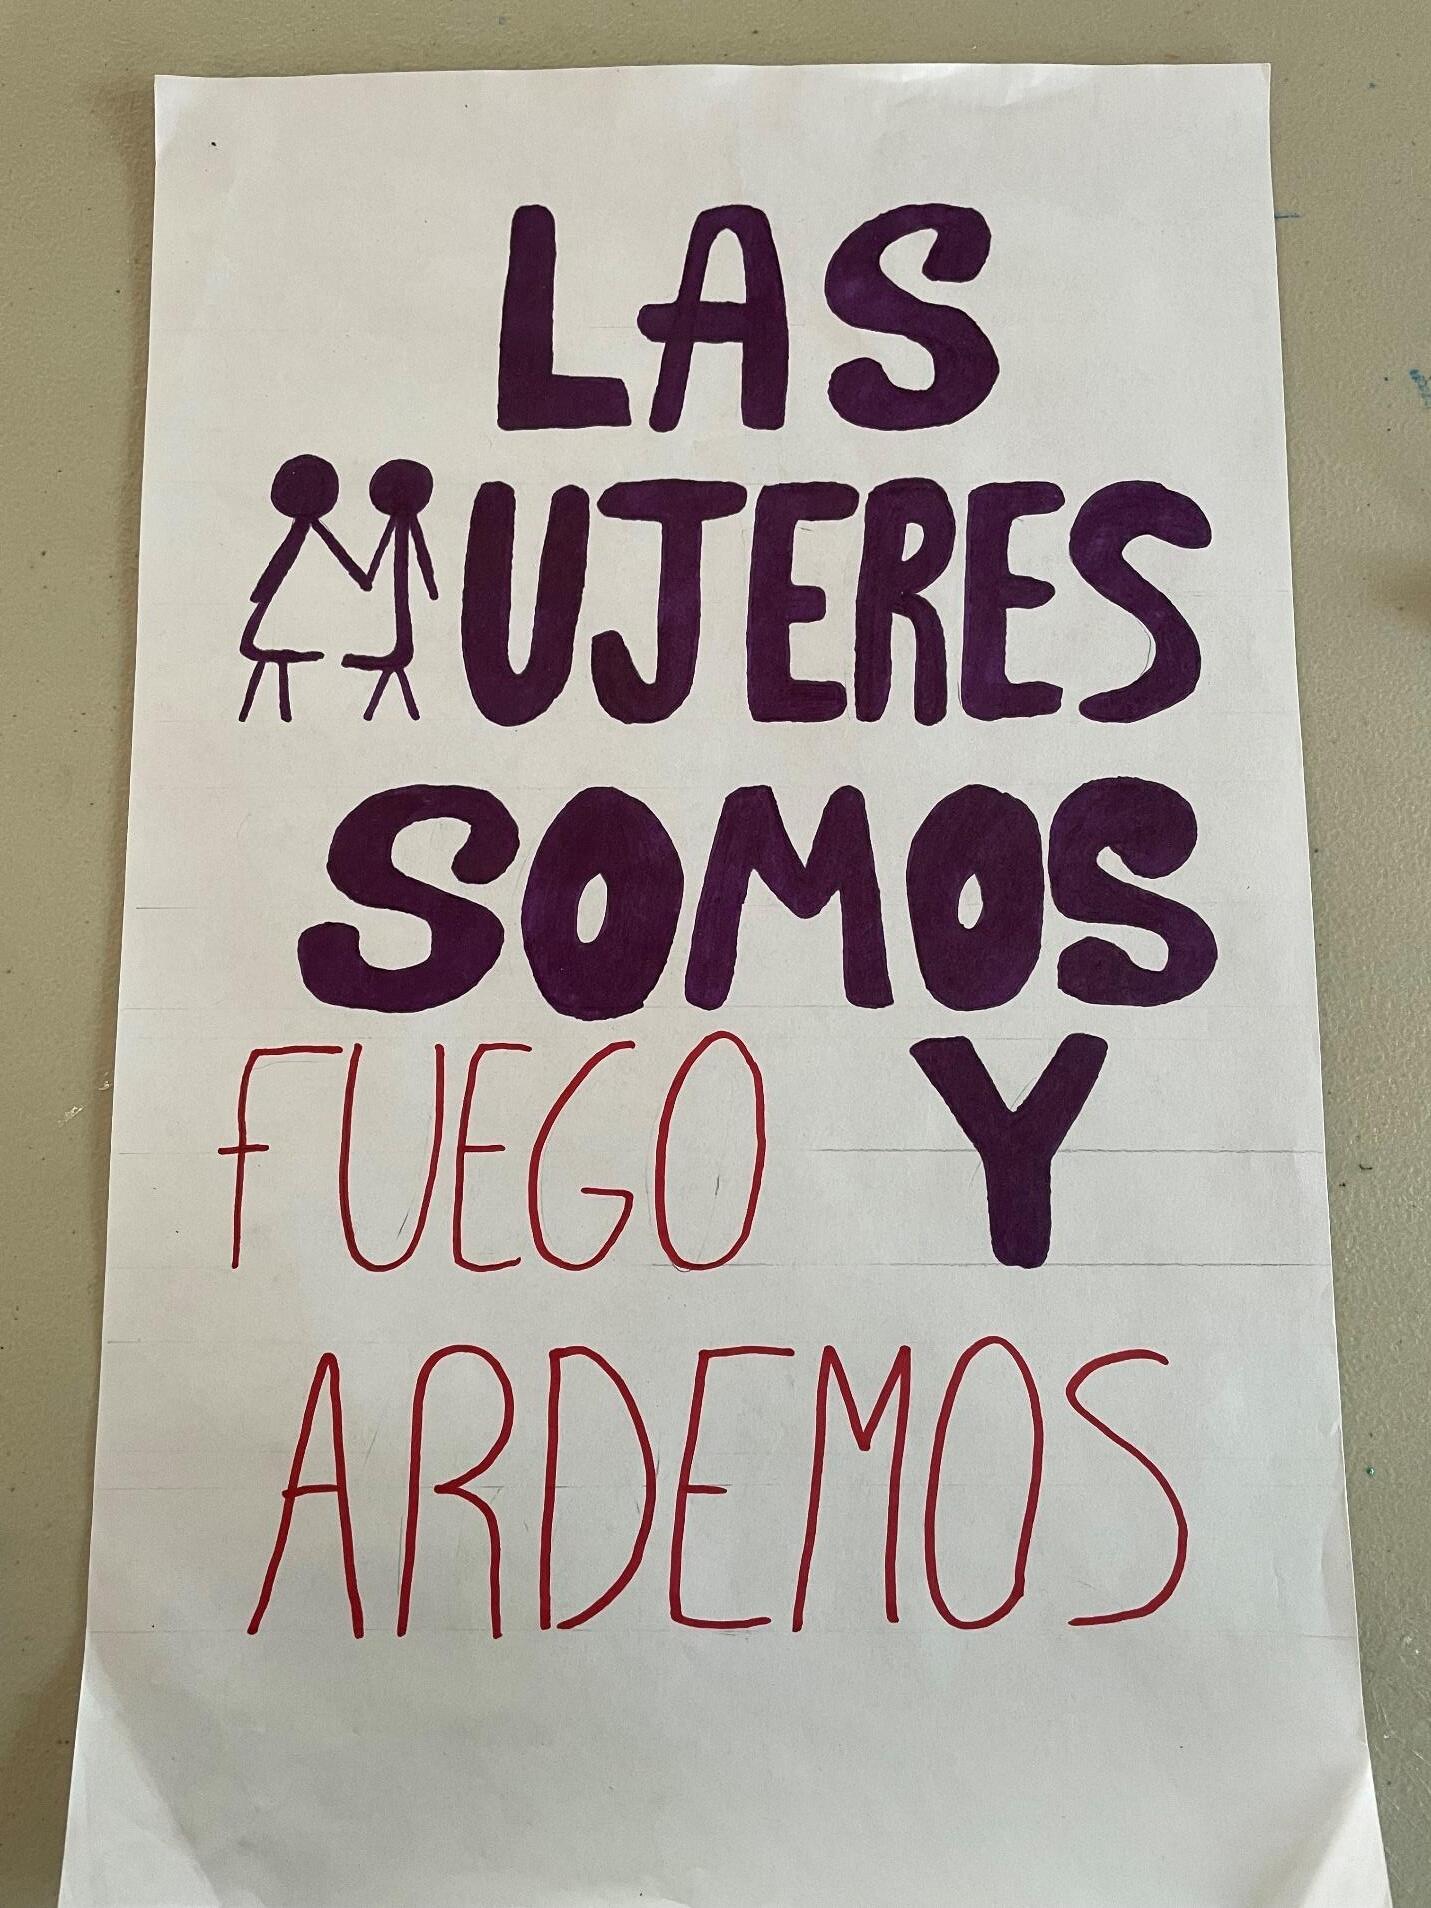 LAS
MUJERES
SOMOS
FUEGO Y
ARDEMOS